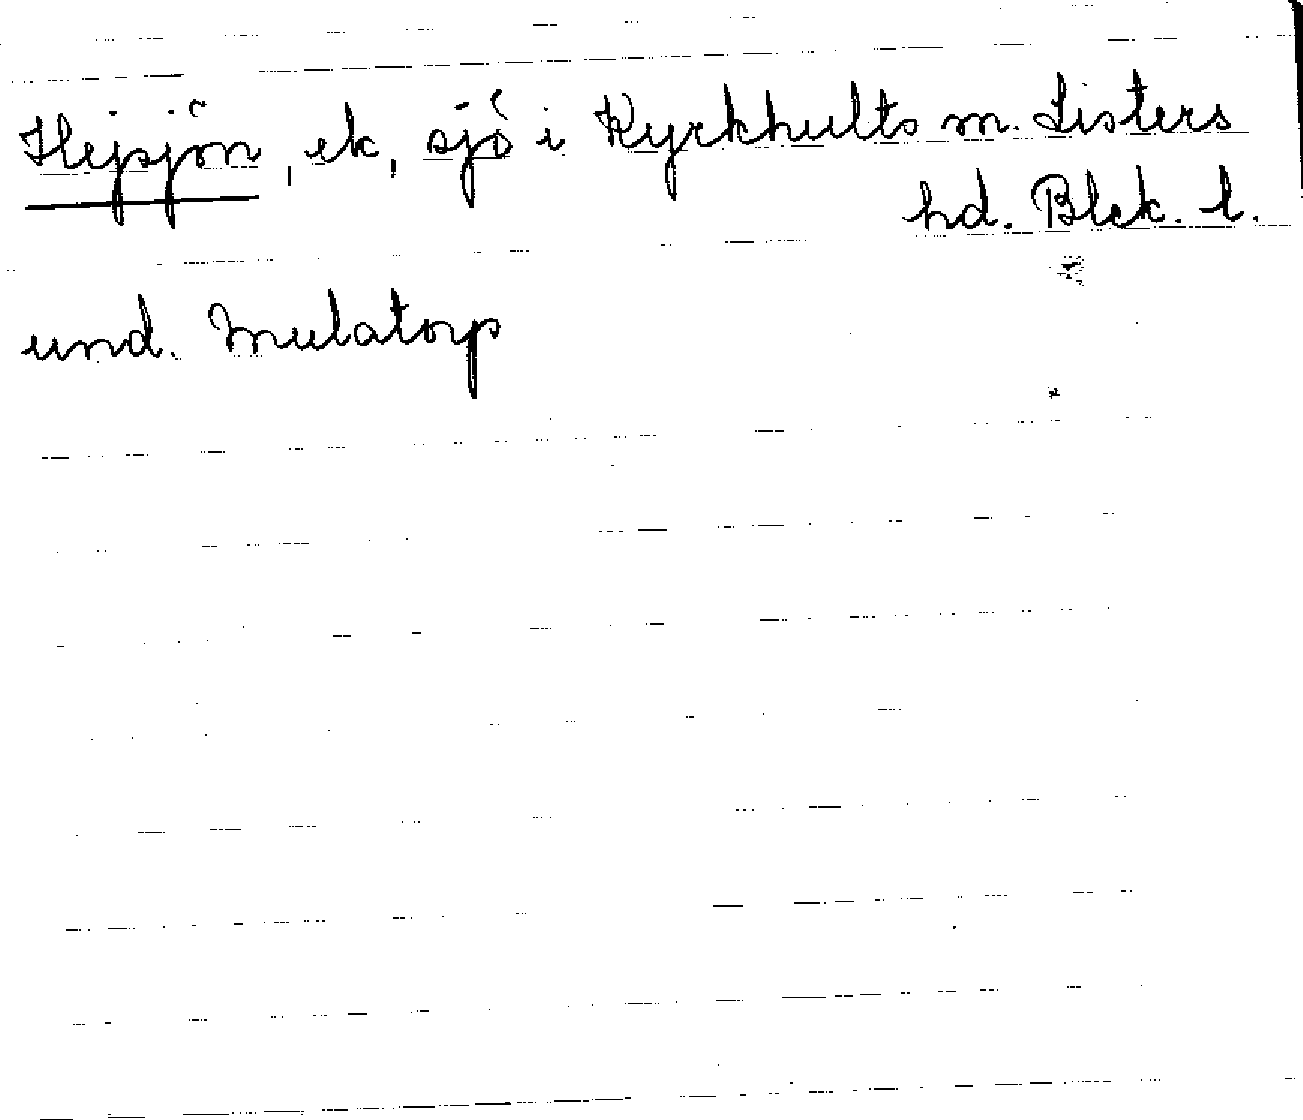 Hejsjön, ek, sjö i Kyrkhults sn. Listers
hd. Blek. l.
und. Mulatorp